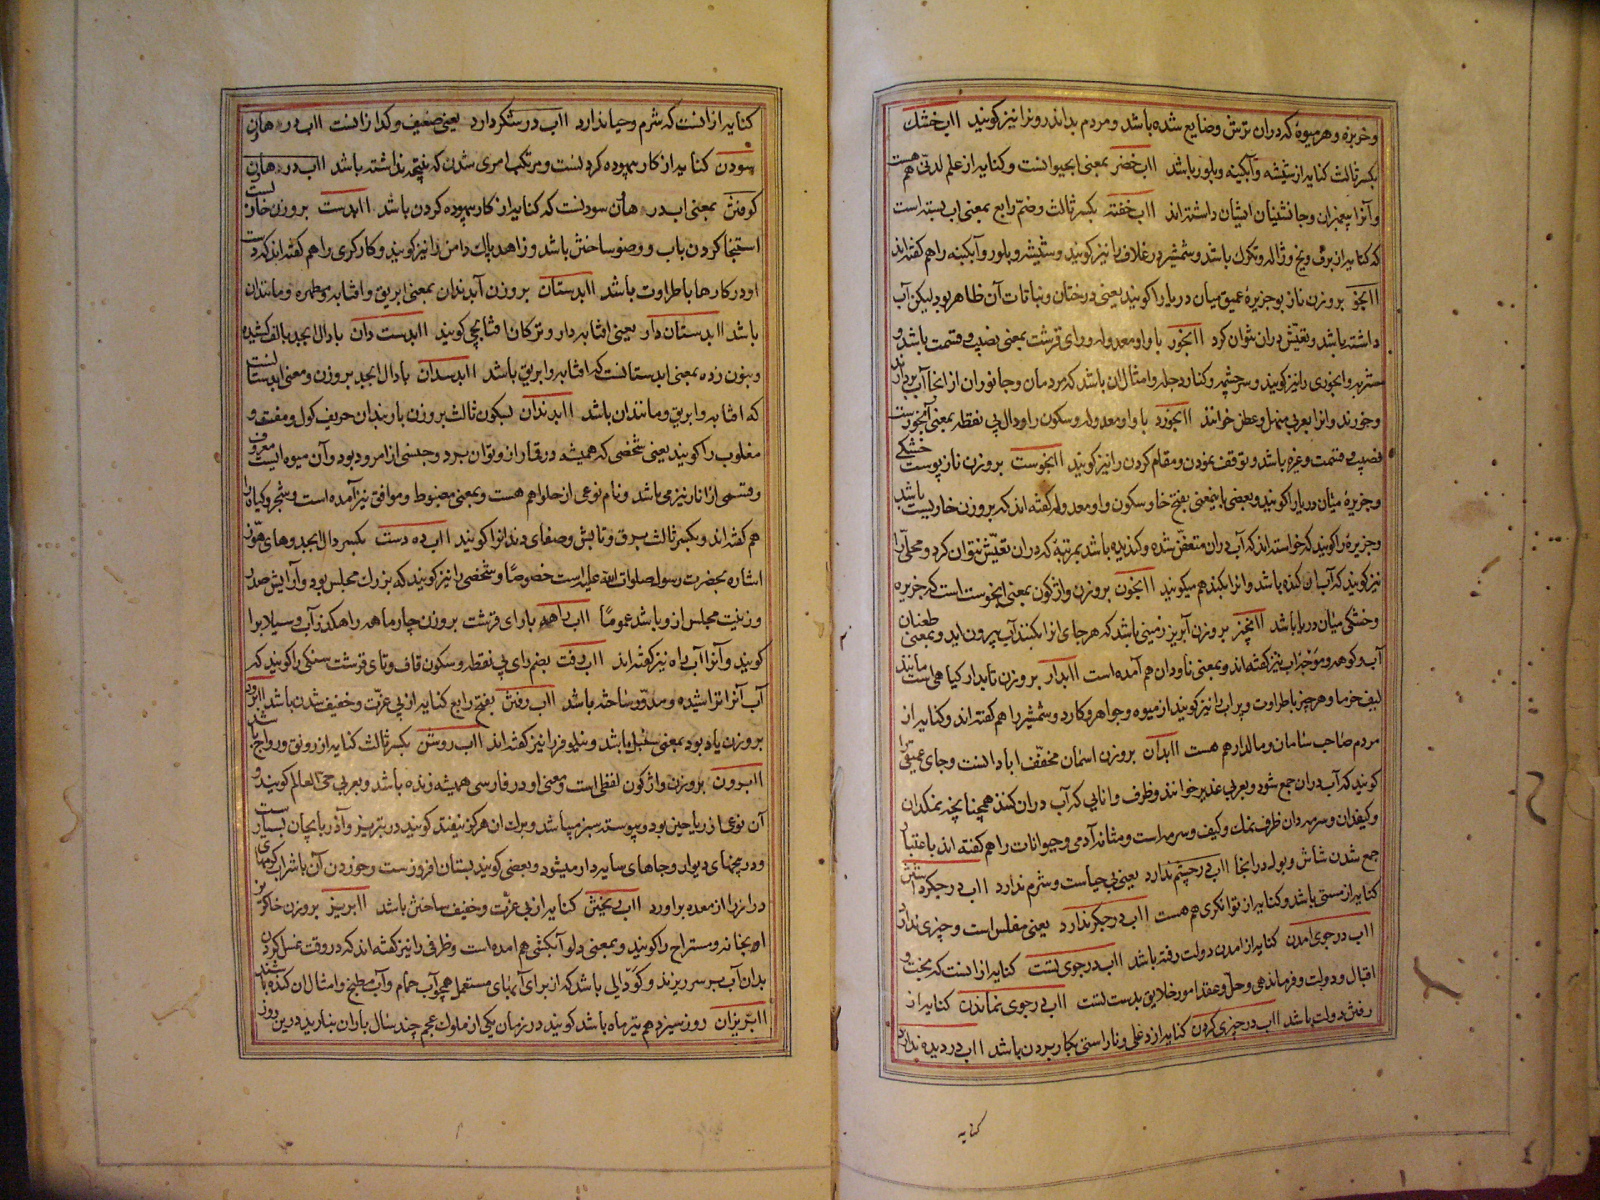 وخربزه وهر میوهٔ که دران ترش وضایع شده باشد ومردم بداندرونرا نیز کویند ااب خشک
بکسر ثالث کنایه از شیشه وآبکینه وبلور باشد ااب خضر بمعنی ابحیوانست وکنایه از علم لدنی هم هست
وآنرا پیغمبران وجانشینان ایشان داشته اند ااب خفته بکسر ثالث وضم رابع بمعنی اب بسته است
که کنایه از برف ویخ وژاله وتکرک باشد وشمشیر در غلاف را نیز کویند وشیشه وبلور وآبکینه را هم کفته اند
ااابخو بروزن نازبو جزیرهٔ عمیق میان دریا را کویند یعنی درختان ونباتات آن ظاهر بود لیکن آب
داشته باشد وتعیش دران نتوان کرد ااابخور با واو معدوله ورای قرشت بمعنی نصیب وقسمت باشد و
مشربه وابخوری را نیز کویند وسر چشمه وکنار دجله وامثال ان باشد که مردمان وجانوران از انجا آب بردارند
وخورند وانرا بعربی منهل وعطن خوانند ااابخورد با واو معدوله وسکون را ودال بی نقطه بمعنی آبخورست
نصیب وقسمت وغیره باشد وتوقف نمودن ومقام کردن را نیز کویند ااابخوست بروزن نازپوست خشکی
وجزیرهٔ میان دریا را کویند وبعضی باینمعنی بفتح خا وسکون واو معدوله کفته اند که بروزن خاربست باشد
وجزیره را کویند که خواسته اند که آب دران متعفن شده وکندیده باشد بمرتبهٔ که دران تعیش نتوان کرد ومحلی را
نیز کویند که آب ان کنده باشد وانرا بکند هم میکویند ااابخون بروزن واژکون بمعنی ابخوست است که جزیره
وخشکی میان دریا باشد ااابخیز بروزن آبریز زمینی باشد که هر جای انرا بکنند آب بیرون اید وبمعنی طغیان
آب وکوهه وموج آب نیز کفته اند وبمعنی ناودان هم آمده است اابدار بروزن تابدار کیاهی است مانند
لیف خرما وهر چیز باطراوت وپر اب را نیز کویند از میوه وجواهر وکارد وشمشیر را هم کفته اند وکنایه از
مردم صاحب سامان ومالدار هم هست اابدان بروزن اسمان مخفف ابادانست وجای عمیقی را
کویند که آب دران جمع شود وبعربی غدیر خوانند وظرف وانایی که آب دران کنند همچنانچه نمکدان
وکیفدان وسرمه دان ظرف نمک وکیف وسرمه است ومثانه آدمی وحیوانات را هم کفته اند باعتبار
جمع شدن شاش وبول در انجا ااب در چشم ندارد یعنی بی حیاست وشرم ندارد ااب در جکر داشتن
کنایه از مستی باشد وکنایه از توانکری هم هست ااب در جکر ندارد یعنی مفلس است وچیزی ندارد
ااب در جوی امدن کنایه از امدن دولت رفته باشد ااب در جوی تست کنایه از انست که بخت و
اقبال ودولت وفرماندهی وحل وعقد امور خلایق بدست تست ااب در جوی نماندن کنایه از
رفتن دولت باشد ااب در چیزی کردن کنایه از دغلی وناراستی بکار بردن باشد ااب در دیده ندارد
کنایه
کنایه از انست که شرم وحیا ندارد ااب در شکر دارد یعنی ضعیف وکداز است ااب در هاون
سودن کنایه از کار بیهوده کردنست ومرتکب امری شدن که نتیجه نداشته باشد ااب در هاون
کوفتن بمعنی اب در هاون سودنست که کنایه از کار بیهوده کردن باشد ااابدست بروزن خان بست
استنجا کردن باب ووضو ساختن باشد وزاهد پاک دامن را نیز کویند وکارکری را هم کفته اند که دست
او در کارها باطراوت باشد ااابدستان بروزن آبدندان بمعنی ابریق وافتابه ومطهره ومانندان
باشد ااابدستان دار یعنی افتابه دار وترکان افتابچی کویند ااابدست دان با دال ابجد بالف کشیده
وبنون زده بمعنی ابدستانست که افتابه وابریق باشد ااابدسدان با دال ابجد بروزن ومعنی ابدستانست
که افتابه وابریق ومانندان باشد ااابدندان بسکون ثالث بروزن باربندان حریف کول ومفت و
مغلوب را کویند یعنی شخصی که همیشه در قمار ازو توان برد وجنسی از امرود بود وآن میوه ایست معروف
وقسمی از انار نیز می باشد ونام نوعی از حلوا هم هست وبمعنی مضبوط وموافق نیز آمده است وشجر وکیاه را
هم کفته اند وبکسر ثالث برق وتابش وصفای دندانرا کویند ااب ده دست بکسر دال ابجد وهای هوز
اشاره بحضرت رسول صلوات الله علیه است خصوصا وشخصی را نیز کویند که بزرک مجلس بود وآرایش صدر
وزینت مجلس ازو باشد عموما ااب راهه با رای قرشت بروزن چارماهه راهکذر آب وسیلاب را
کویند وآنرا آب راه نیز کفته اند ااب رفت بضم رای بی نقطه وسکون قاف وتای قرشت سنکی را کویند که
آب آنرا تراشیده ومدور ساخته باشد ااب رفتن بفتح رابع کنایه از بی عزت وخفیف شدن باشد اابرود
بروزن یاد بود بمعنی سنبل باشد ونیلوفر را نیز کفته اند ااب روشن بکسر ثالث کنایه از رونق ورواج باشد
اابرون بروزن واژکون لفظی است ومعنی او در فارسی همیشه زنده باشد وبعربی حی العالم کویند و
آن نوعی از ریاحین بود وپیوسته سبز میباشد وبرک ان هرکز نیفتد کویند در تبریز وآذربایجان بسیار است
ودر پیخهای دیوار وجاهای سایه دار میشود وبعضی کویند بستان افروزست وخوردن آن با شراب کرمهای
دراز را از معده براورد ااب ریختن کنایه از بی عزت وخفیف ساختن باشد اابریز بروزن خاکریز
ادبخانه ومستراح را کویند وبمعنی دلو آبکشی هم امده است وظرفی را نیز کفته اند که در وقت غسل کردن
بدان آب بر سر ریزند وکودالی باشد که از برای آبهای مستعمل همچو آب حمام وآب مطبخ وامثال ان کنده باشند
اابریزان روز سیزدهم تیر ماه باشد کویند در زمان یکی از ملوک عجم چند سال باران نبارید درین روز